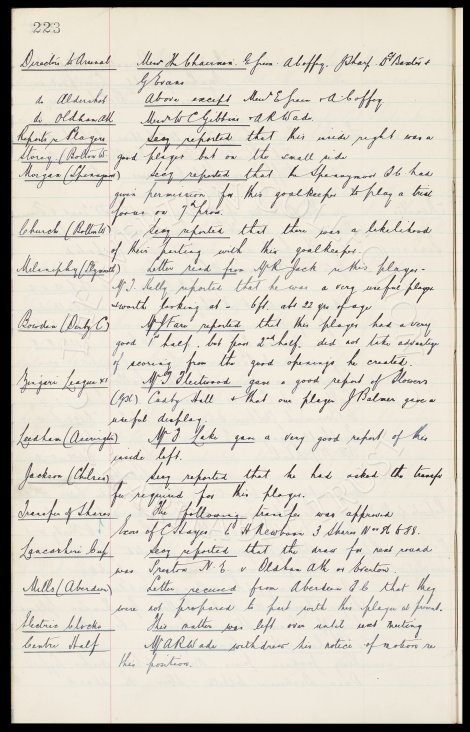 223
Directors to Arsenal Messrs The Chairman. E Green. A Coffey. J Sharp. Dr Baxter &
G Evans
do Aldershot Above except Messrs E Green & A Coffey
do Oldham Ath Messrs W C Gibbins & A R Wade.
Reports re Players Secy reported that this inside right was a
Storey (Bolton W) good player but on the small side
Morgan (Spennymoor) Secy reported that the Spennymoor Club had
given permission for this goalkeeper to play a trial
for us on 7th prox.
Church (Bolton W) Secy reported that there was a likelihood
of their parting with this goalkeeper.
Melaniphy (Plymouth) Letter read from Mr R Jack re this player -
Mr T. Kelly reported that he was a very useful player
& worth looking at - 6ft. abt 22 yrs of age
Bowden (Derby C) Mr J Fare reported that this player had a very
good 1st half, but poor 2nd half. did not take advantage
of scoring from the good openings he created.
Zingari League XI Mr T. Fleetwood gave a good report of Flowers
Casby Hall & that our player J Balmer gave a
useful display.
Leedham (Accrington) Mr T Lake gave a very good report of this
inside left.
Jackson (Chelsea) Secy reported that he had asked the transfer
fee required for this player.
Transfer of Shares The following transfer was approved
Exors of C Hayes. C H Newbown 3 Shares Nos 86 to 88.
Lancashire Cup Secy reported that the draw for next round
was Preston N. E v Oldham Ath or Everton.
Mills (Aberdeen) Letter received from Aberdeen F.C that they
were not prepared to part with this player at present.
Electric Clocks This matter was left over until next meeting
Centre Half Mr A R Wade withdrew his notice of motion re
this position.